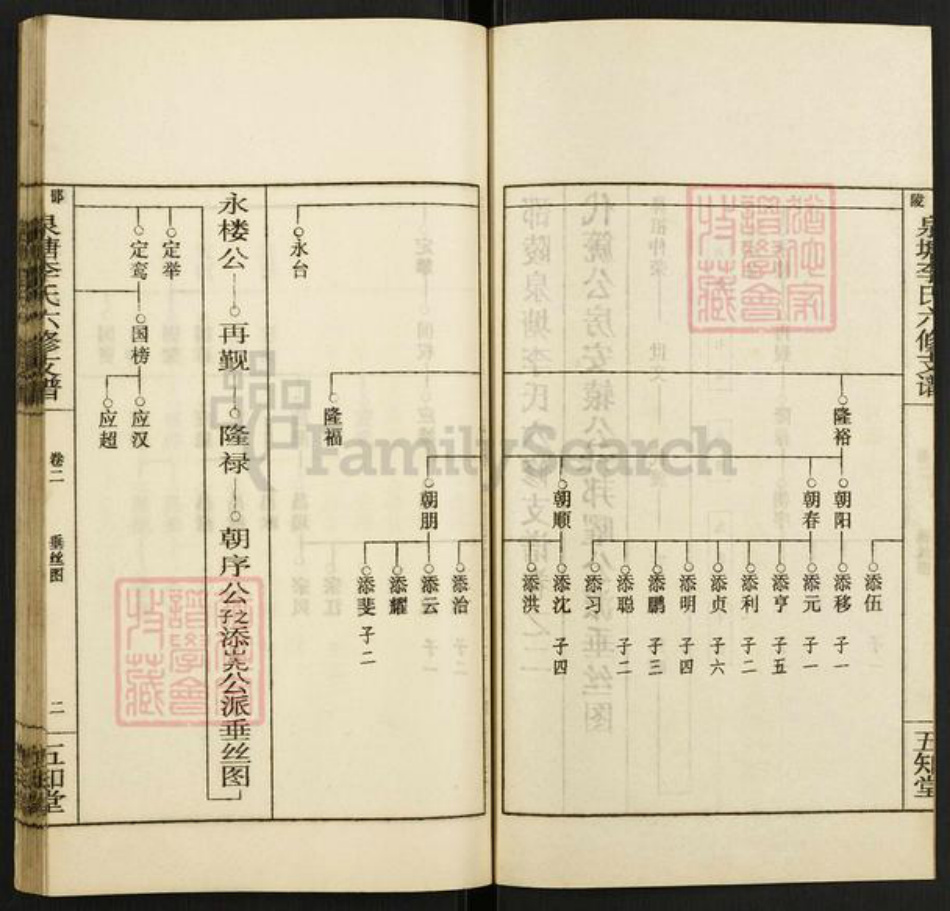 陵
泉塘李氏六修支谱
五知堂
隆裕
朝阳
朝春
朝顺
添伍
添移 子一
添元 子一
添亨 子五
添利 子二
添贞 子六
添明 子四
添鹏 子三
添聪 子二
添习
添沈 子四
添洪
永台
隆福
朝朋
添治
添云
添耀
添斐 子二
永楼公 再觐 隆禄 朝序公之子添
公派垂丝图
定举
定鸾
国榜
应汉
应超
邵
泉塘李氏六修支谱
卷二
垂丝图
二
五知堂
FamilySearch